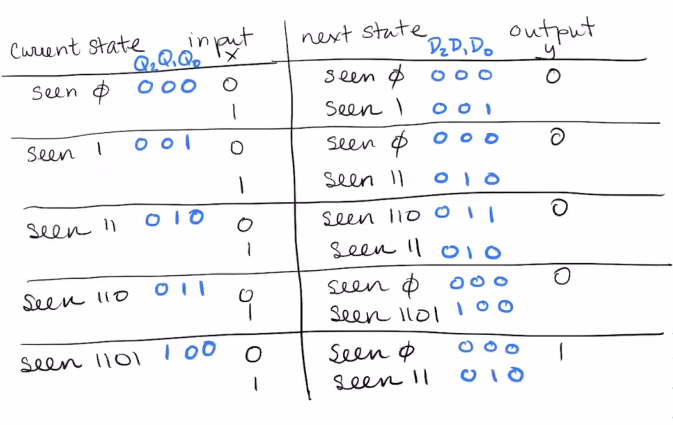 current state input next state output
Q₂Q₁Q₀ x D₂D₁D₀ y
seen ϕ 000 0 seen ϕ 000 0
1 seen 1 001
seen 1 001 0 seen ϕ 000 0
1 seen 11 010
seen 11 010 0 seen 110 011 0
1 seen 11 010
seen 110 011 0 seen ϕ 000 0
1 seen 1101 100
seen 1101 100 0 seen ϕ 000 1
1 seen 11 010